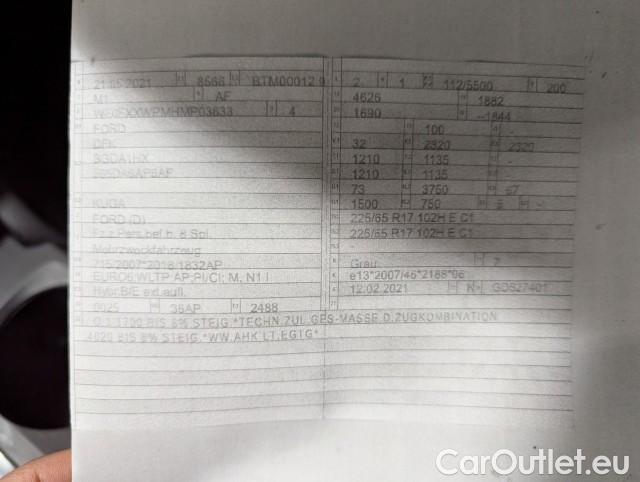 21.05.2021 8566 BTM00012 9
M1 AF
4
FORD
DFK
KUGA
FORD (D)
Fz.z.Pers.bef.b. 8 Spl.
Mehrzweckfahrzeug
715/2007*2018/1832AP
EURO6;WLTP AP;PI/CI; M, N1 I
Hybr.B/E ext.aufl.
0025 36AP 2488
2 1 112/5500 200
4626 1882
1690 --1844
100 -
32 2320 2320
1210 1135 -
1210 1135 -
73 3750 67
1500 750 5 -
225/65 R17 102H E C1
225/65 R17 102H E C1
-
Grau 7
e13*2007/46*2188*06
12.02.2021 K
O.1:1700 BIS 8% STEIG.*TECHN.ZUL.GES-MASSE D.ZUGKOMBINATION
4020 BIS 8% STEIG.*WW.AHK LT.EGTG*
CarOutlet.eu